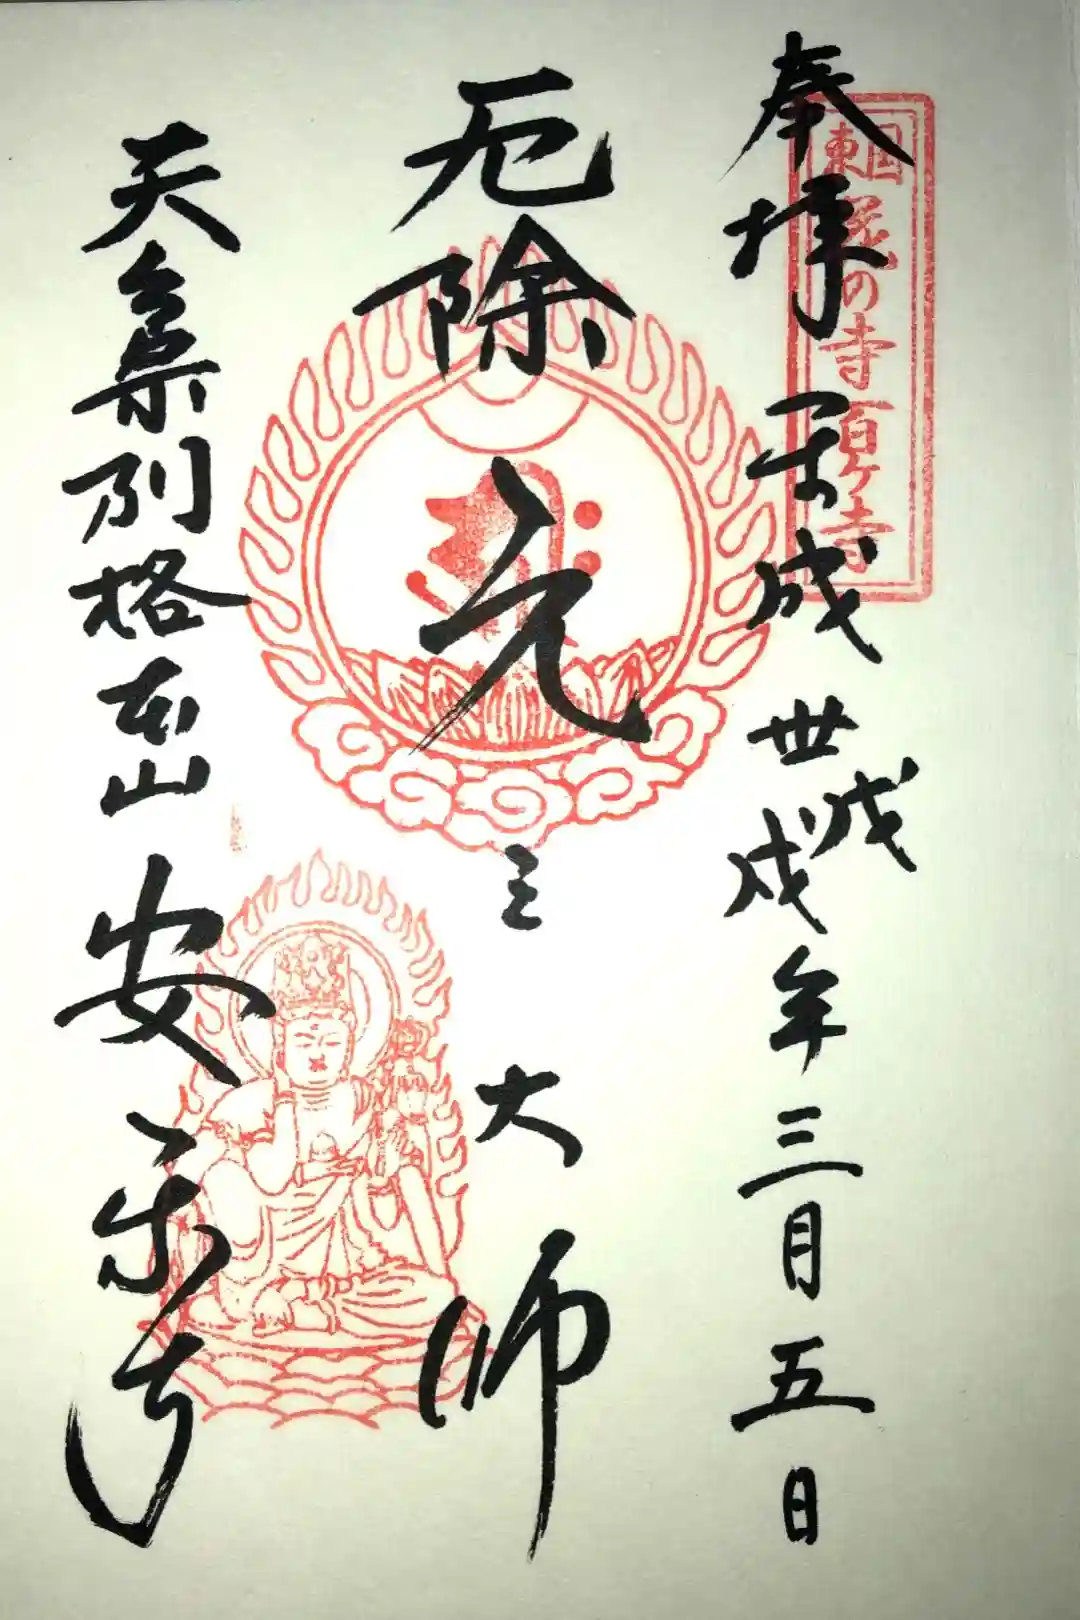 奉拝 平成 卅 戊
戌年 三月 五日
東国 花の寺 百ヶ寺
厄除 元三大師
天台宗別格本山 安楽寺